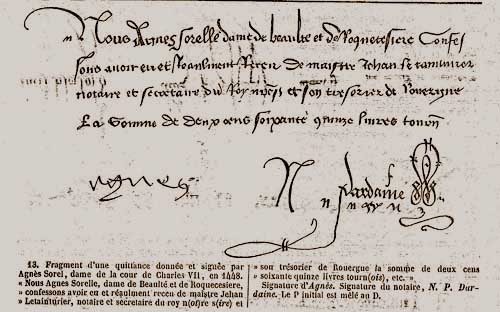 Nous Agnes sorelle dame de beaulte et de Roquecesiere Confes
sons avoir eu et Realment Receu de maistre Jehan le tainturier
notaire et secretaire du Roy nosire et son tresorier de Rouergue
La somme de deux cens soixante quinze livres tourn
agnes
N Pdardaine
13. Fragment d'une quittance donnée et signée par
Agnès Sorel, dame de la cour de Charles VII, en 1448.
» Nous Agnes Sorelle, dame de Beaulté et de Roquecesiere,
» confessons avoir eu et réaulment receu de maistre Jehan
» Letainturier, notaire et secrétaire du roy n(ot)re s(ire) et
» son trésorier de Rouergue la somme de deux cens
» soixante quinze livres tourn(ois), etc. »
Signature d'Agnès. Signature du notaire, N. P. Dar-
daine. Le P initial est mêlé au D.